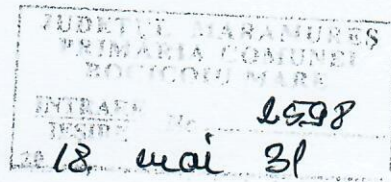 JUDEȚUL MARAMUREȘ
PRIMĂRIA COMUNEI
BOCICOIU MARE
INTRARE
IEȘIRE No. 2598
2018 mai 31